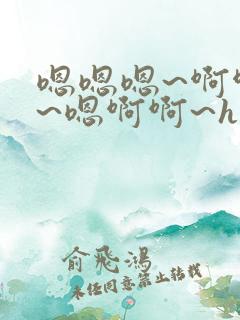 嗯嗯嗯~啊啊
~嗯啊啊~h
俞飛鴻
未经同意禁止转载